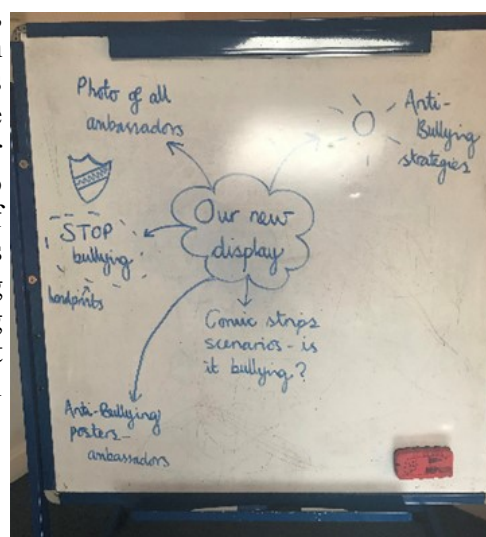 Photo of all
ambassadors
Anti-
Bullying
strategies
Our new
display
STOP
bullying
handprints
Comic strips
scenarios - is
it bullying?
Anti-Bullying
posters -
ambassadors